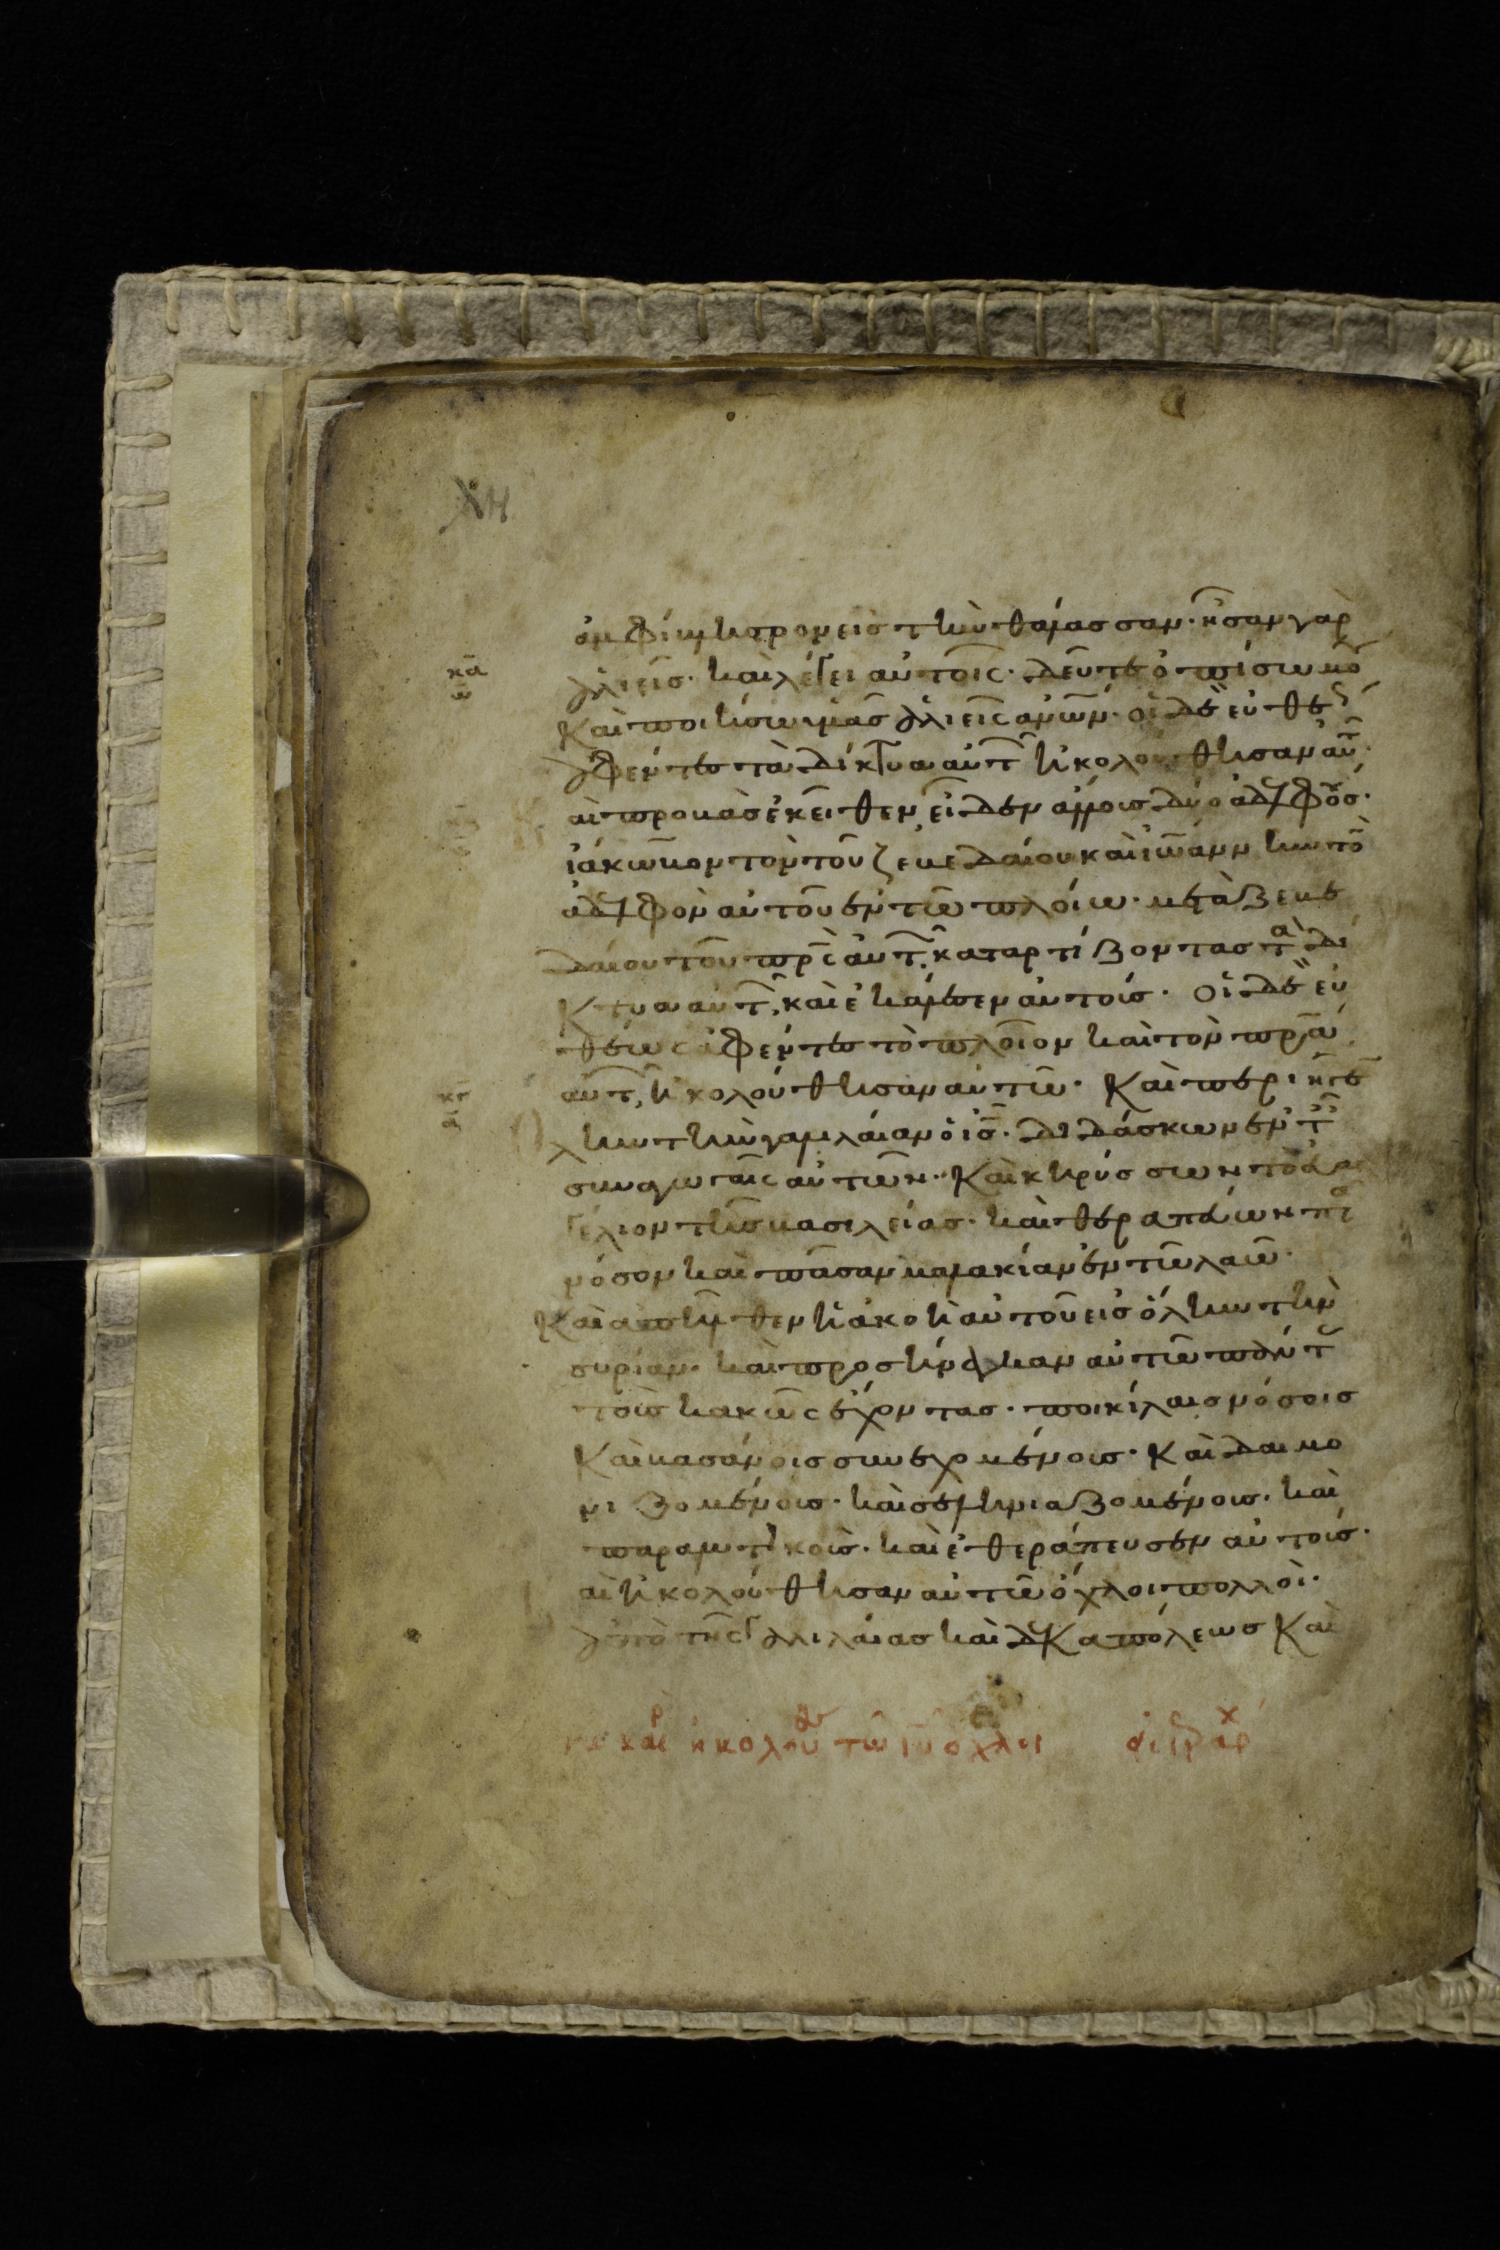 ἀμφίβληστρον εἰς τὴν θάλασσαν· ἦσαν γὰρ
ἁλιεῖς· καὶ λέγει αὐτοῖς· δεῦτε ὀπίσω μου
κα
καὶ ποιήσω ὑμᾶς ἁλιεῖς ἀνων· οἱ δὲ εὐθέως
ἀφέντες τὰ δίκτυα αὐτ ἠκολούθησαν αὐτ
αὶ προβὰς ἐκεῖθεν, εἶδεν ἄλλους δύο ἀδελφούς·
ἰάκωβον τὸν τοῦ ζεβεδαίου καὶ ἰωάννην τὸ
ἀδελφὸν αὐτοῦ ἐν τῶ πλοίω· μετὰ ζεβε
δαίου τοῦ πρς αὐτ, καταρτίζοντας τὰ δί
κτυα αὐτ, καὶ ἐκάλεσεν αὐτούς· οἱ δὲ εὐ
θέως ἀφέντες τὸ πλοῖον καὶ τὸν πρα
αὐτ, ἠκολούθησαν αὐτῶ· καὶ περιῆγεν
λην τὴν γαλιλαίαν ὁ ις· διδάσκων ἐν τ
συναγωγαῖς αὐτῶν· καὶ κηρύσσων τὸ
γέλιον τῆς βασιλείας· καὶ θεραπεύων πᾶ
νόσον καὶ πᾶσαν μαλακίαν ἐν τῶ λαῶ·
καὶ ἀπῆλθεν ἡ ἀκοὴ αὐτοῦ εἰς ὅλην τὴν
συρίαν· καὶ προσήνεγκαν αὐτῶ πάντ
τοὺς κακῶς ἔχοντας· ποικίλαις νόσοις
καὶ βασάνοις συνεχομένους· καὶ δαιμο
νιζομένους· καὶ σεληνιαζομένους· καὶ
παραλυτικούς· καὶ ἐθεράπευσεν αὐτούς·
αὶ ἠκολούθησαν αὐτῶ ὄχλοι πολλοὶ·
ἀπὸ τῆς γαλιλαίας καὶ δεκαπόλεως καὶ
ἠκολού τῶ ιυ ὄχλοι